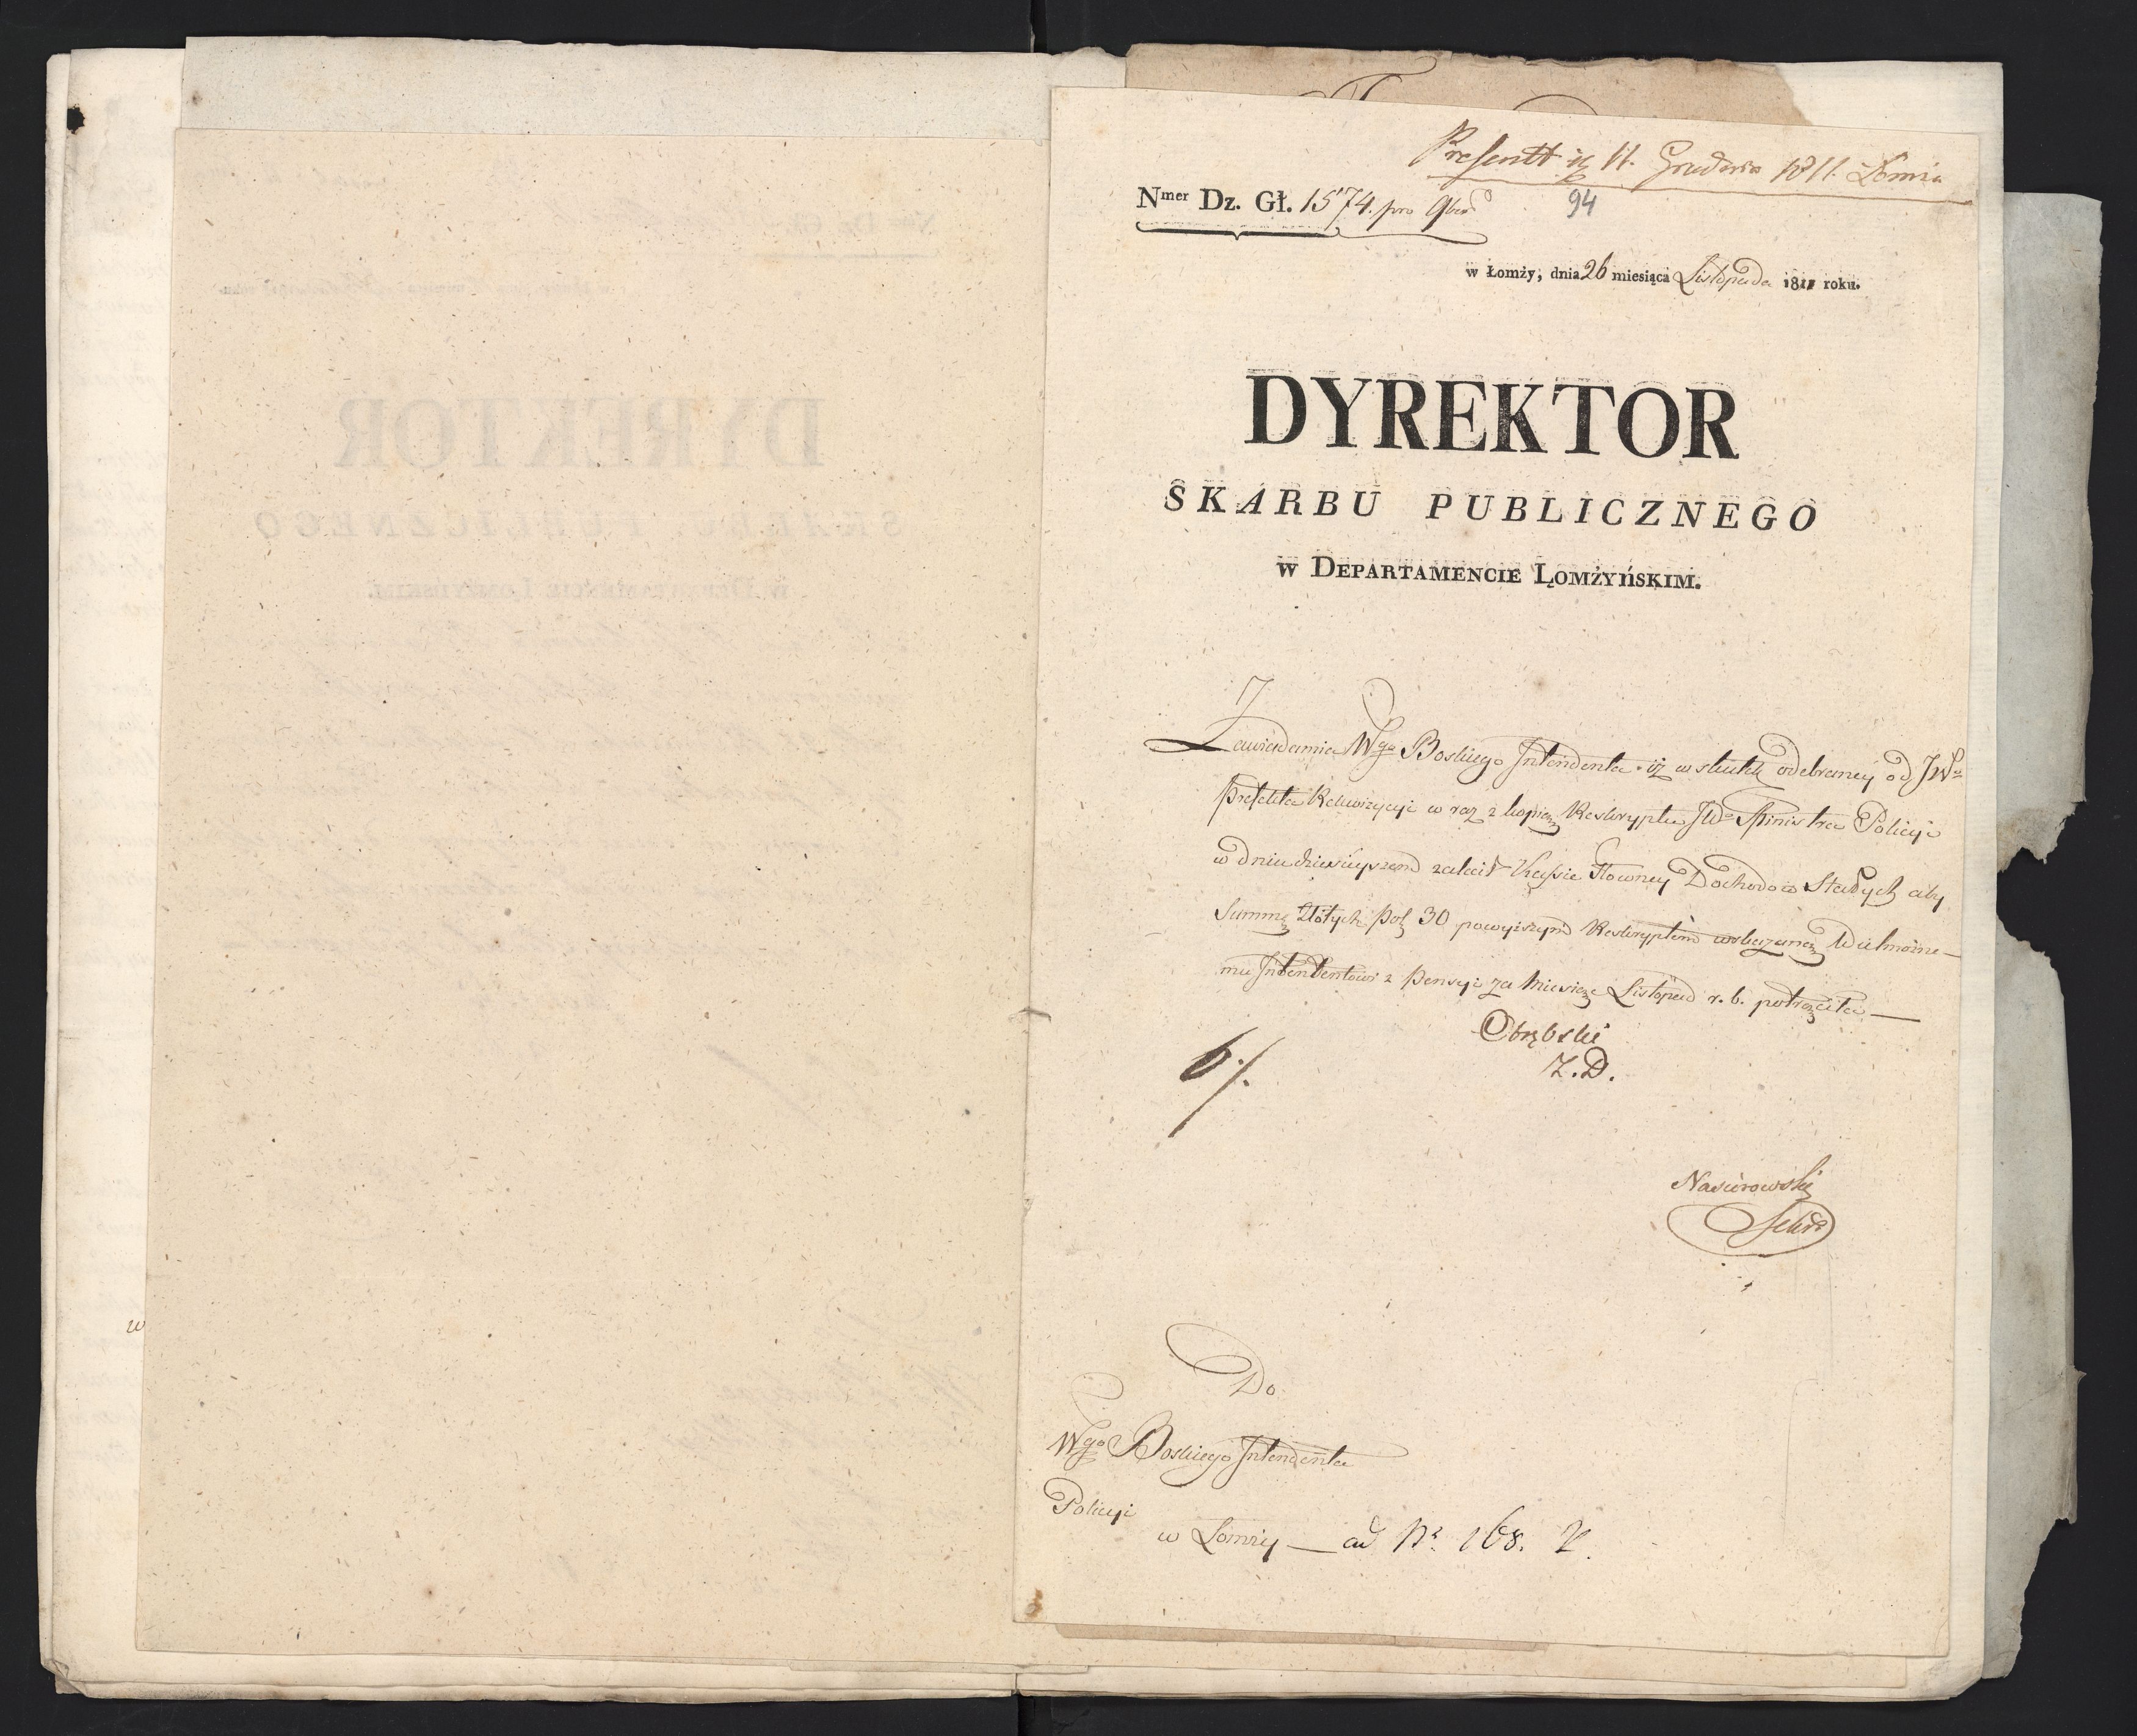 Presentt 11. Grudnia 1811. Łomża
Nmer Dz. Gł. 1574. pro 9bri
94
w Łomży, dnia 26 miesiąca Listopada 1811 roku.
DYREKTOR
SKARBU PUBLICZNEGO
w Departamencie Łomżyńskim.
Zawiadamia Wgo Boskiego Intendenta iż w skutek odebraney od JWo
Prefekta Rekwizycyi w raz z kopią Reskryptu JWo Ministra Policyi
w dniu dzisieyszem zalecił Kassie Głowney Dochodow Stałych aby
Summę Złotych Pol 30 powyższym Reskryptem wskazaną Wielmożne-
mu Intendentowi z Pensyi za Miesiąc Listopad r. b. potrąciła —
Obrębski
Z. D.
6/.
Nasierowski
Sekr
Do
Wgo Boskiego Intendenta
Policyi
w Łomży — ad Nr 168.
w